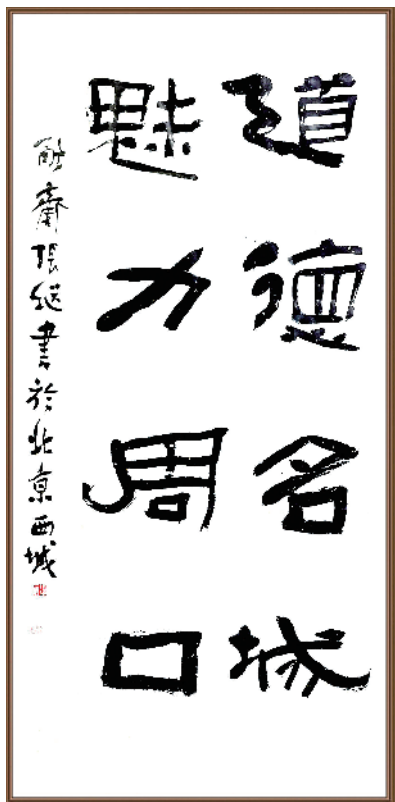 道德名城
魅力周口
齋张继書於北京西城